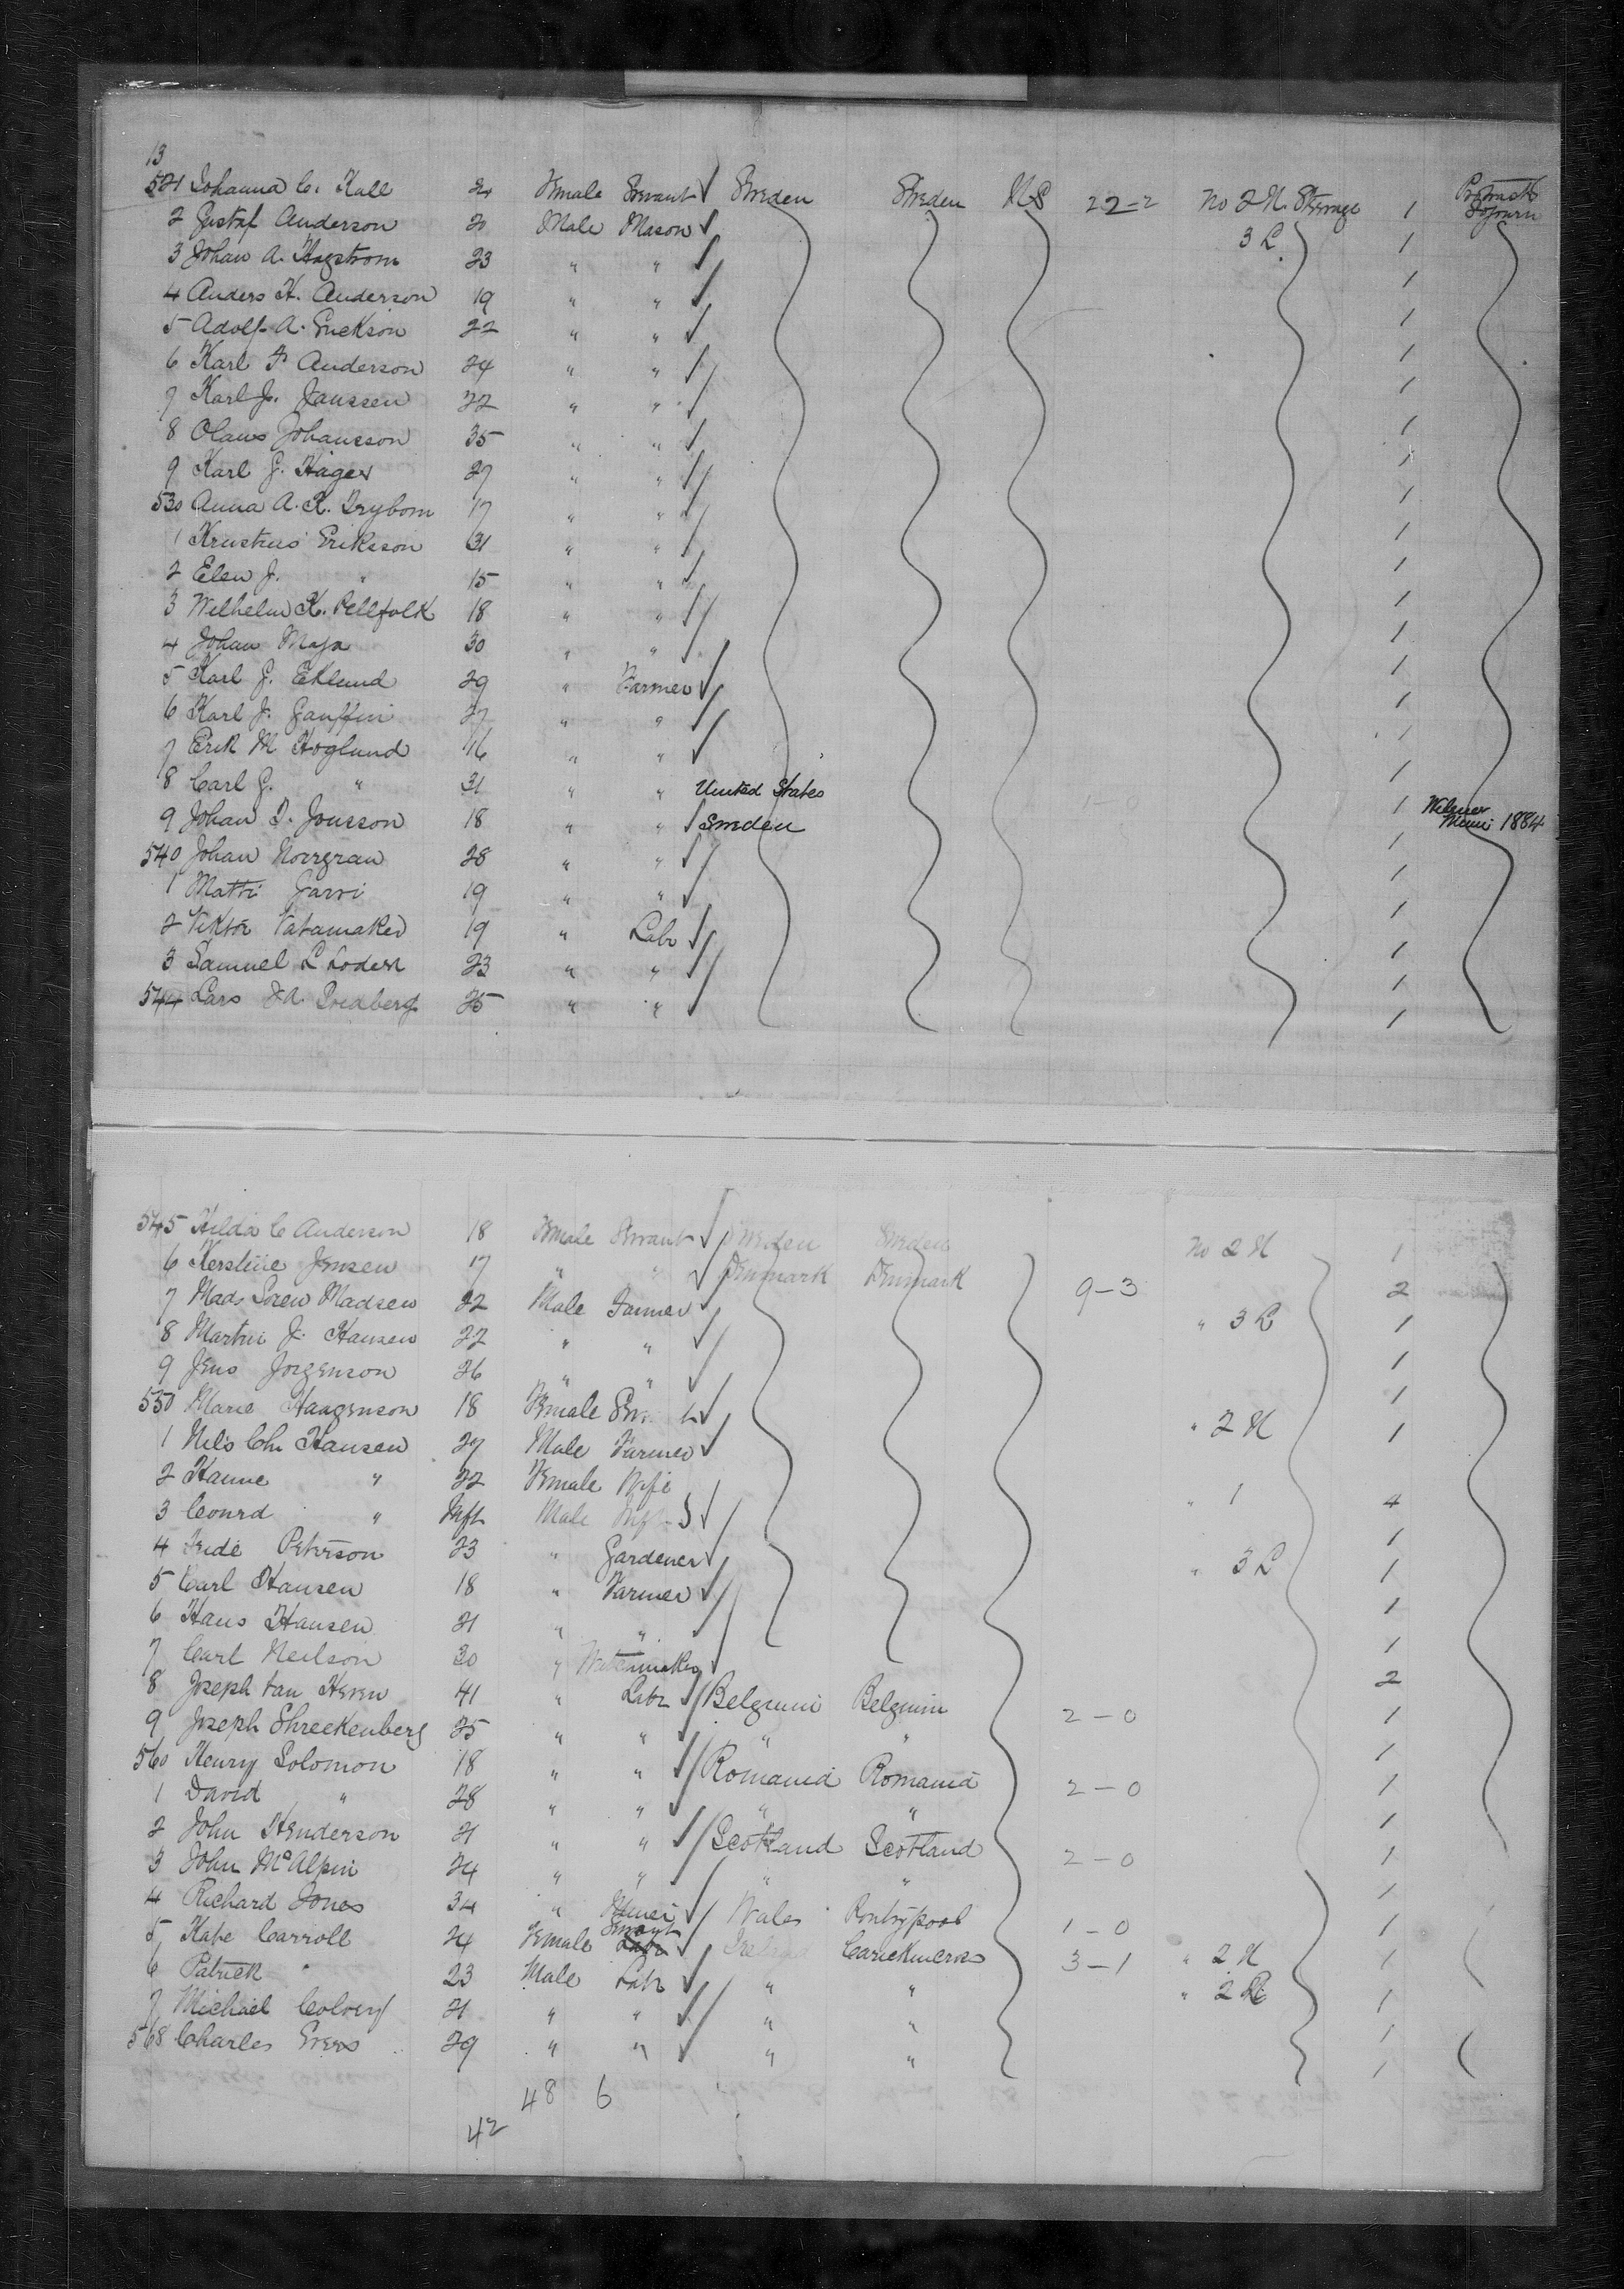 13
521 Johanna C. Kall 24 Female Servant Sweden Sweden U.S 22-2 No 2 H. Steerage 1 Protract Sojourn
2 Gustaf Anderson 20 Male Mason 3 L. 1
3 Johan A. Hagstrom 23 " " 1
4 Anders H. Anderson 19 " " 1
5 Adolf A. Erickson 22 " " 1
6 Karl F Anderson 24 " " 1
7 Karl J. Janssen 22 " " 1
8 Olaus Johansson 35 " " 1
9 Karl G. Hager 27 " " 1
530 Anna A. K. Trybom 17 " " 1
1 Eriksson 31 " " 1
2 Elsa J. " 15 " " 1
3 Wilhelm K. Pellfolk 18 " " 1
4 Johan Maja 30 " " 1
5 Karl G. Eklund 29 " Farmer 1
6 Karl J. Gauffin 27 " " 1
7 Erik M Hoglund 16 " " 1
8 Carl G. " 31 " " United States 1-0 1 1884
9 Johan D. Jonsson 18 " " Sweden 1
540 Johan Norrgran 28 " " 1
1 Matti Jarvi 19 " " 1
2 Viktor 19 " Labr 1
3 Samuel L 23 " " 1
544 Lars J.A. 25 " " 1
545 Hilda C Anderson 18 Female Servant Sweden Sweden No 2 H 1
6 Kerstine Jensen 17 " " Denmark Denmark 9-3 2
7 Mads Soren Madsen 22 Male Farmer " 3 L 1
8 Martin J. Hansen 22 " " 1
9 Jens Jorgenson 26 " " 1
550 Marie Haagenson 18 Female " 2 H 1
1 Nils Chr Hansen 27 Male Farmer
2 Hanne " 22 Female Wife " 1 4
3 Conrd " Inft Male Inft 1
4 Peterson 23 " Gardener " 3 L 1
5 Carl Hansen 18 " Farmer 1
6 Hans Hansen 21 " " 1
7 Carl Neilson 30 " Watchmaker 2
8 Joseph van Heren 41 " Labr Belgium Belgium 2-0 1
9 Joseph Shreekenberg 25 " " " " 1
560 Henry Solomon 18 " " Romania Romania 2-0 1
1 David " 28 " " " " 1
2 John Henderson 21 " " Scotland Scotland 2-0 1
3 John McAlpin 24 " " " " 1
4 Richard Jones 34 " Miner Wales Pontypool 1-0 1
5 Kate Carroll 24 Female Servant Labr Ireland 3-1 " 2 H 1
6 Patrick " 23 Male Labr " " " 2 1
7 Michael 21 " " " " 1
568 Charles 29 " " " " 1
48 6
42